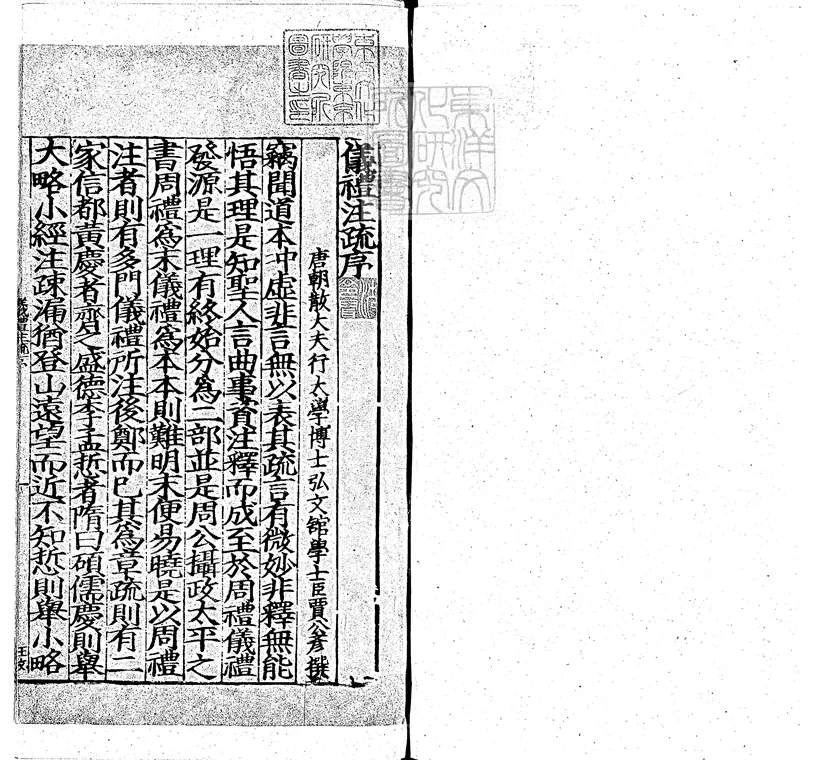 儀禮注疏序
唐朝散大夫行大學博士弘文館學士臣賈公彥撰
竊聞道本冲虛非言無以表其疏言有微妙非釋無能
悟其理是知聖人言曲事資注釋而成至於周禮儀禮
發源是一理有終始分為二部並是周公攝政太平之
書周禮為末儀禮為本本則難明末便易曉是以周禮
注者則有多門儀禮所注後鄭而已其為章疏則有二
家信都黃慶者齊之盛德李孟悊者隋曰碩儒慶則舉
大略小經注疎漏猶登山遠望而近不知悊則舉小略
東方文化學院東京研究所圖書之印
東洋文化研究所圖書